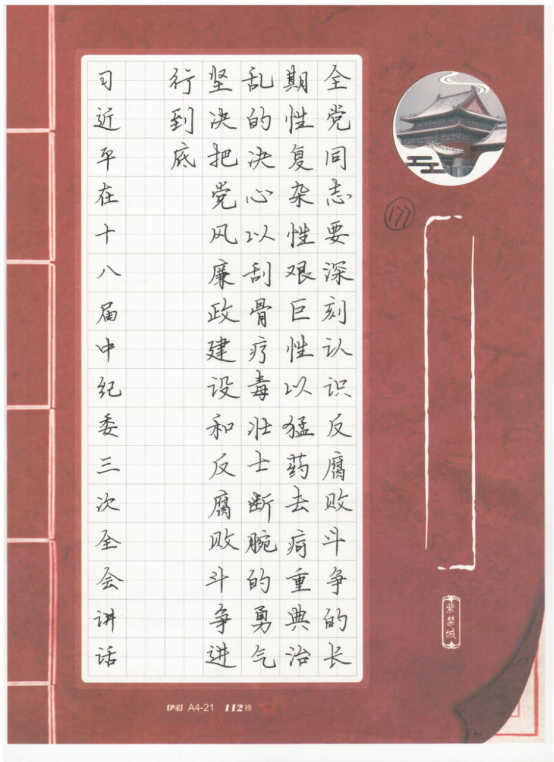 全党同志要深刻认识反腐败斗争的长
期性复杂性艰巨性以猛药去疴重典治
乱的决心以刮骨疗毒壮士断腕的勇气
坚决把党风廉政建设和反腐败斗争进
行到底
习近平在十八届中纪委三次全会讲话
177
紫禁城
伊彩 A4-21 112格